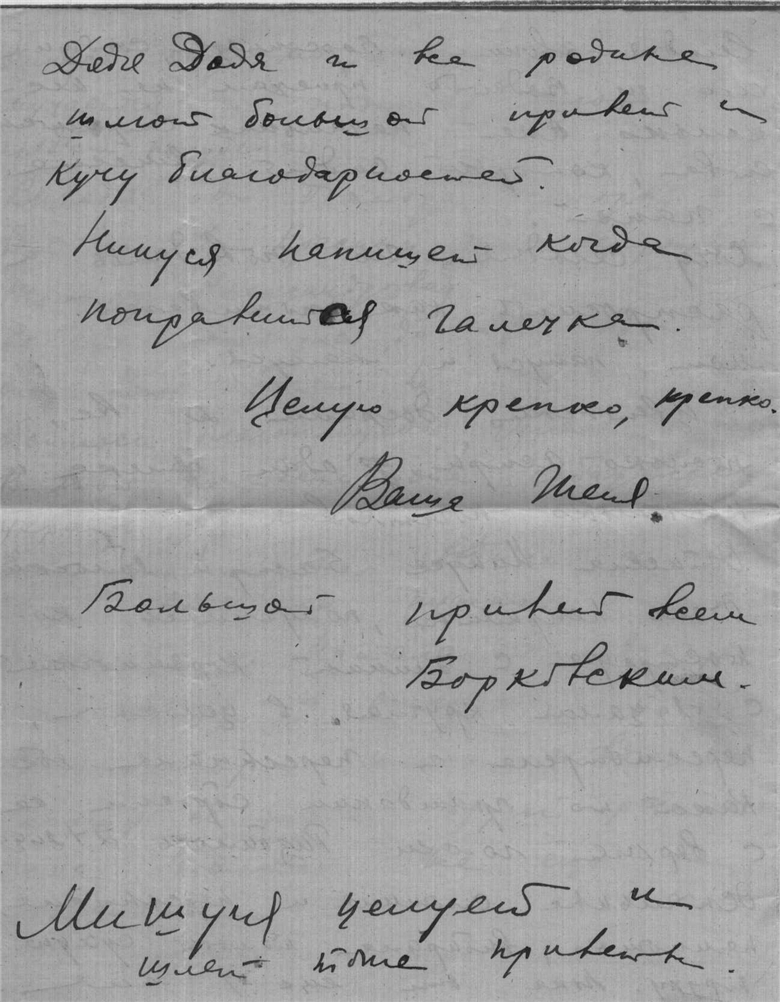 Дядя Додя и все родные
шлют большой привет и
кучу благодарностей.
Нинуся напишет когда
поправится Галечка.
Целую крепко, крепко.
Ваша Женя
Большой привет всем
Борковским.
Мишуня целует и
шлет тоже приветы.